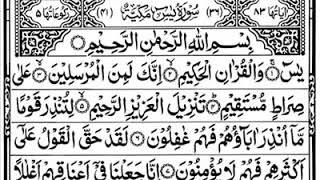 اٰیَاتُهَا ۸۳ (۳۶) سُوْرَةُ يٰسٓ مَكِّيَّةٌ (۴۱) رُكُوْعَاتُهَا ۵
بِسْمِ اللّٰهِ الرَّحْمٰنِ الرَّحِيْمِ
يٰسٓ ۝ وَالْقُرْاٰنِ الْحَكِيْمِ ۝ اِنَّكَ لَمِنَ الْمُرْسَلِيْنَ ۝ عَلٰى
صِرَاطٍ مُّسْتَقِيْمٍ ۝ تَنْزِيْلَ الْعَزِيْزِ الرَّحِيْمِ ۝ لِتُنْذِرَ قَوْمًا
مَّآ اُنْذِرَ اٰبَآؤُهُمْ فَهُمْ غٰفِلُوْنَ ۝ لَقَدْ حَقَّ الْقَوْلُ عَلٰٓى
اَكْثَرِهِمْ فَهُمْ لَا يُؤْمِنُوْنَ ۝ اِنَّا جَعَلْنَا فِيْٓ اَعْنَاقِهِمْ اَغْلٰلًا